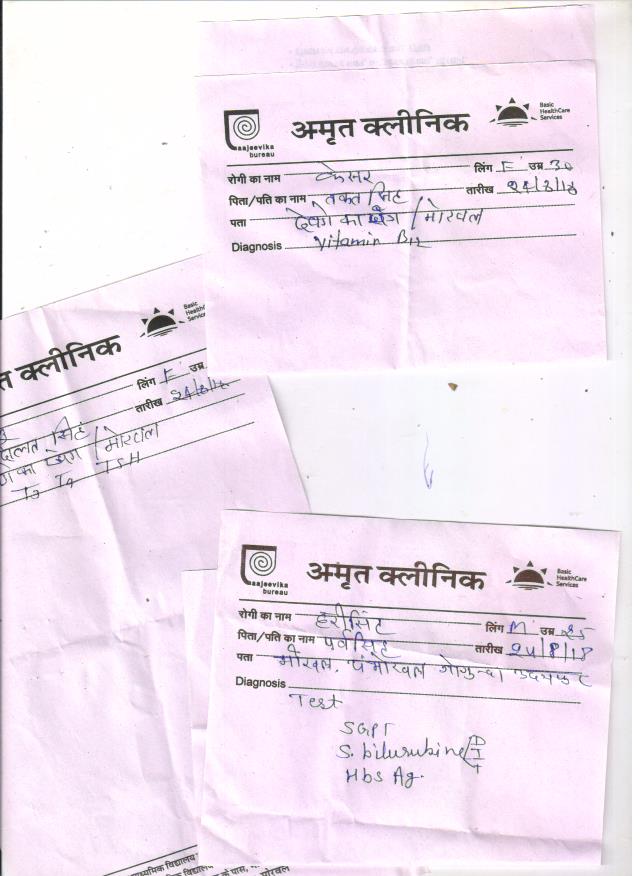 aajeevika
bureau
अमृत क्लीनिक
Basic
HealthCare
Services
रोगी का नाम केसर लिंग F उम्र 30
पिता/पति का नाम तकत सिंह तारीख 24/8/18
पता का / मोरवल
Diagnosis Vitamin B12
त क्लीनिक
Basic
HealthC
Service
लिंग F उम्र
तारीख
दौलत सिंह
का / मोरवल
T3 T4 TSH
aajeevika
bureau
अमृत क्लीनिक
Basic
HealthCare
Services
रोगी का नाम हरीसिंह लिंग M उम्र 25
पिता/पति का नाम पर्वसिंह तारीख 24/8/18
पता मोरवल, गोगुन्दा
Diagnosis
Test
SGPT
S. bilurubine/D
I
T
Hbs Ag.
माध्यमिक विद्यालय
के पास,
मोरवल